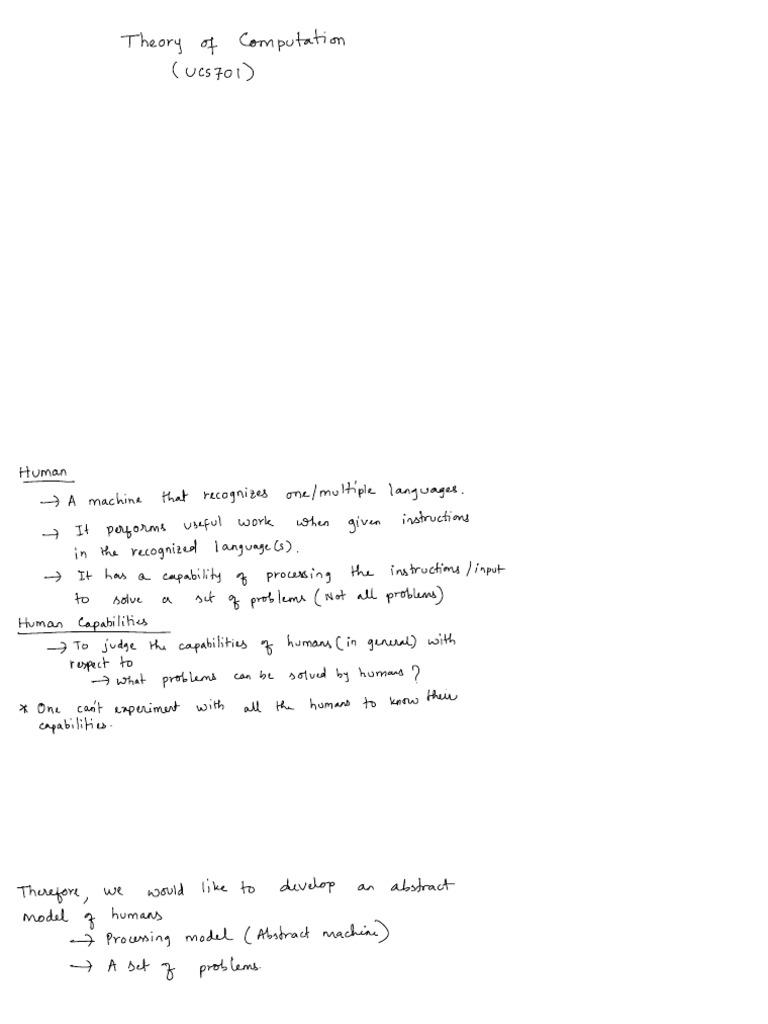 Theory of Computation
(UCS701)
Human
→ A machine that recognizes one/multiple languages.
→ It performs useful work when given instructions
in the recognized language(s).
→ It has a capability of processing the instructions/input
to solve a set of problems (Not all problems)
Human Capabilities
→ To judge the capabilities of humans (in general) with
respect to
→ what problems can be solved by humans?
* One can't experiment with all the humans to know their
capabilities.
Therefore, we would like to develop an abstract
model of humans
→ Processing model (Abstract machine)
→ A set of problems.